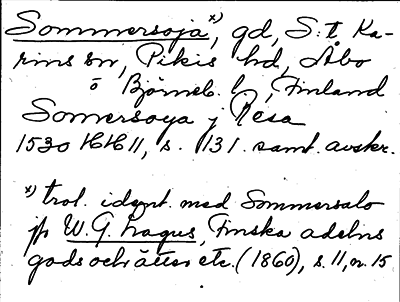 Sommersoja*), gd, S:t Ka-
rins sn, Pikis hd, Åbo
o Björneb. l, Finland
Somersoya j Resa
1530 HH 11, s. 131. samt. avskr.
*) trol. ident. med Sommersalo
jfr W. G. Lagus, Finska adelns
gods och ätter etc. (1860), s. 11, n. 15